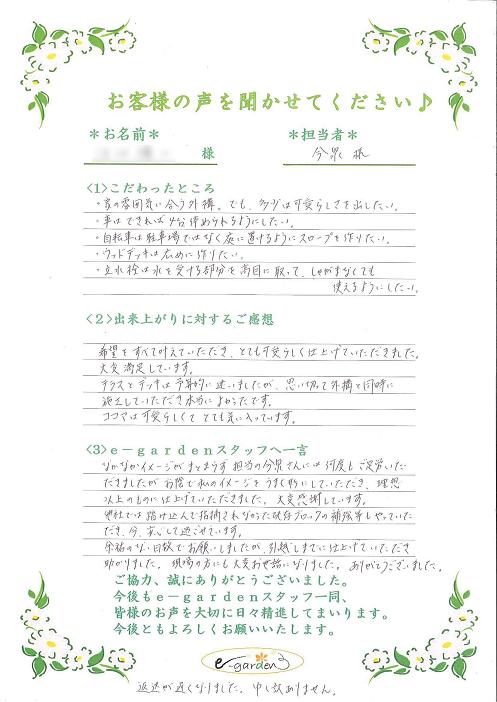 お客様の声を聞かせてください♪
*お名前* *担当者*
様 今泉 様
<1>こだわったところ
・家の雰囲気に合う外構。でも、多少は可愛らしさを出したい。
・車はできれば4台停められるようにしたい。
・自転車は駐車場ではなく庭に置けるようにスロープを作りたい。
・ウッドデッキは広めに作りたい。
・立水栓は水を受ける部分を高目に取って、しゃがまなくても
使えるようにしたい。
<2>出来上がりに対するご感想
希望をすべて叶えていただき、とても可愛らしく仕上げていただきました。
大変満足しています。
テラスとデッキは予算的に迷いましたが、思い切って外構と同時に
施工していただき本当によかったです。
ココマは可愛らしくてとても気に入っています。
<3>e-gardenスタッフへ一言
なかなかイメージがまとまらず担当の今泉さんには何度もご足労いた
だきましたがお陰で私のイメージをうまく形にしていただき、理想
以上のものに仕上げていただきました。大変感謝しています。
他社では踏み込んで指摘されなかった既存ブロックの補強等もやっていた
だき、今、安心して過ごせています。
余裕のない日数でお願いしましたが、引越しまでに仕上げていただき
助かりました。現場の方にも大変お世話になりました。ありがとうございました。
ご協力、誠にありがとうございました。
今後もe-gardenスタッフ一同、
皆様のお声を大切に日々精進してまいります。
今後ともよろしくお願いいたします。
e-garden
返送が遅くなりました。申し訳ありません。